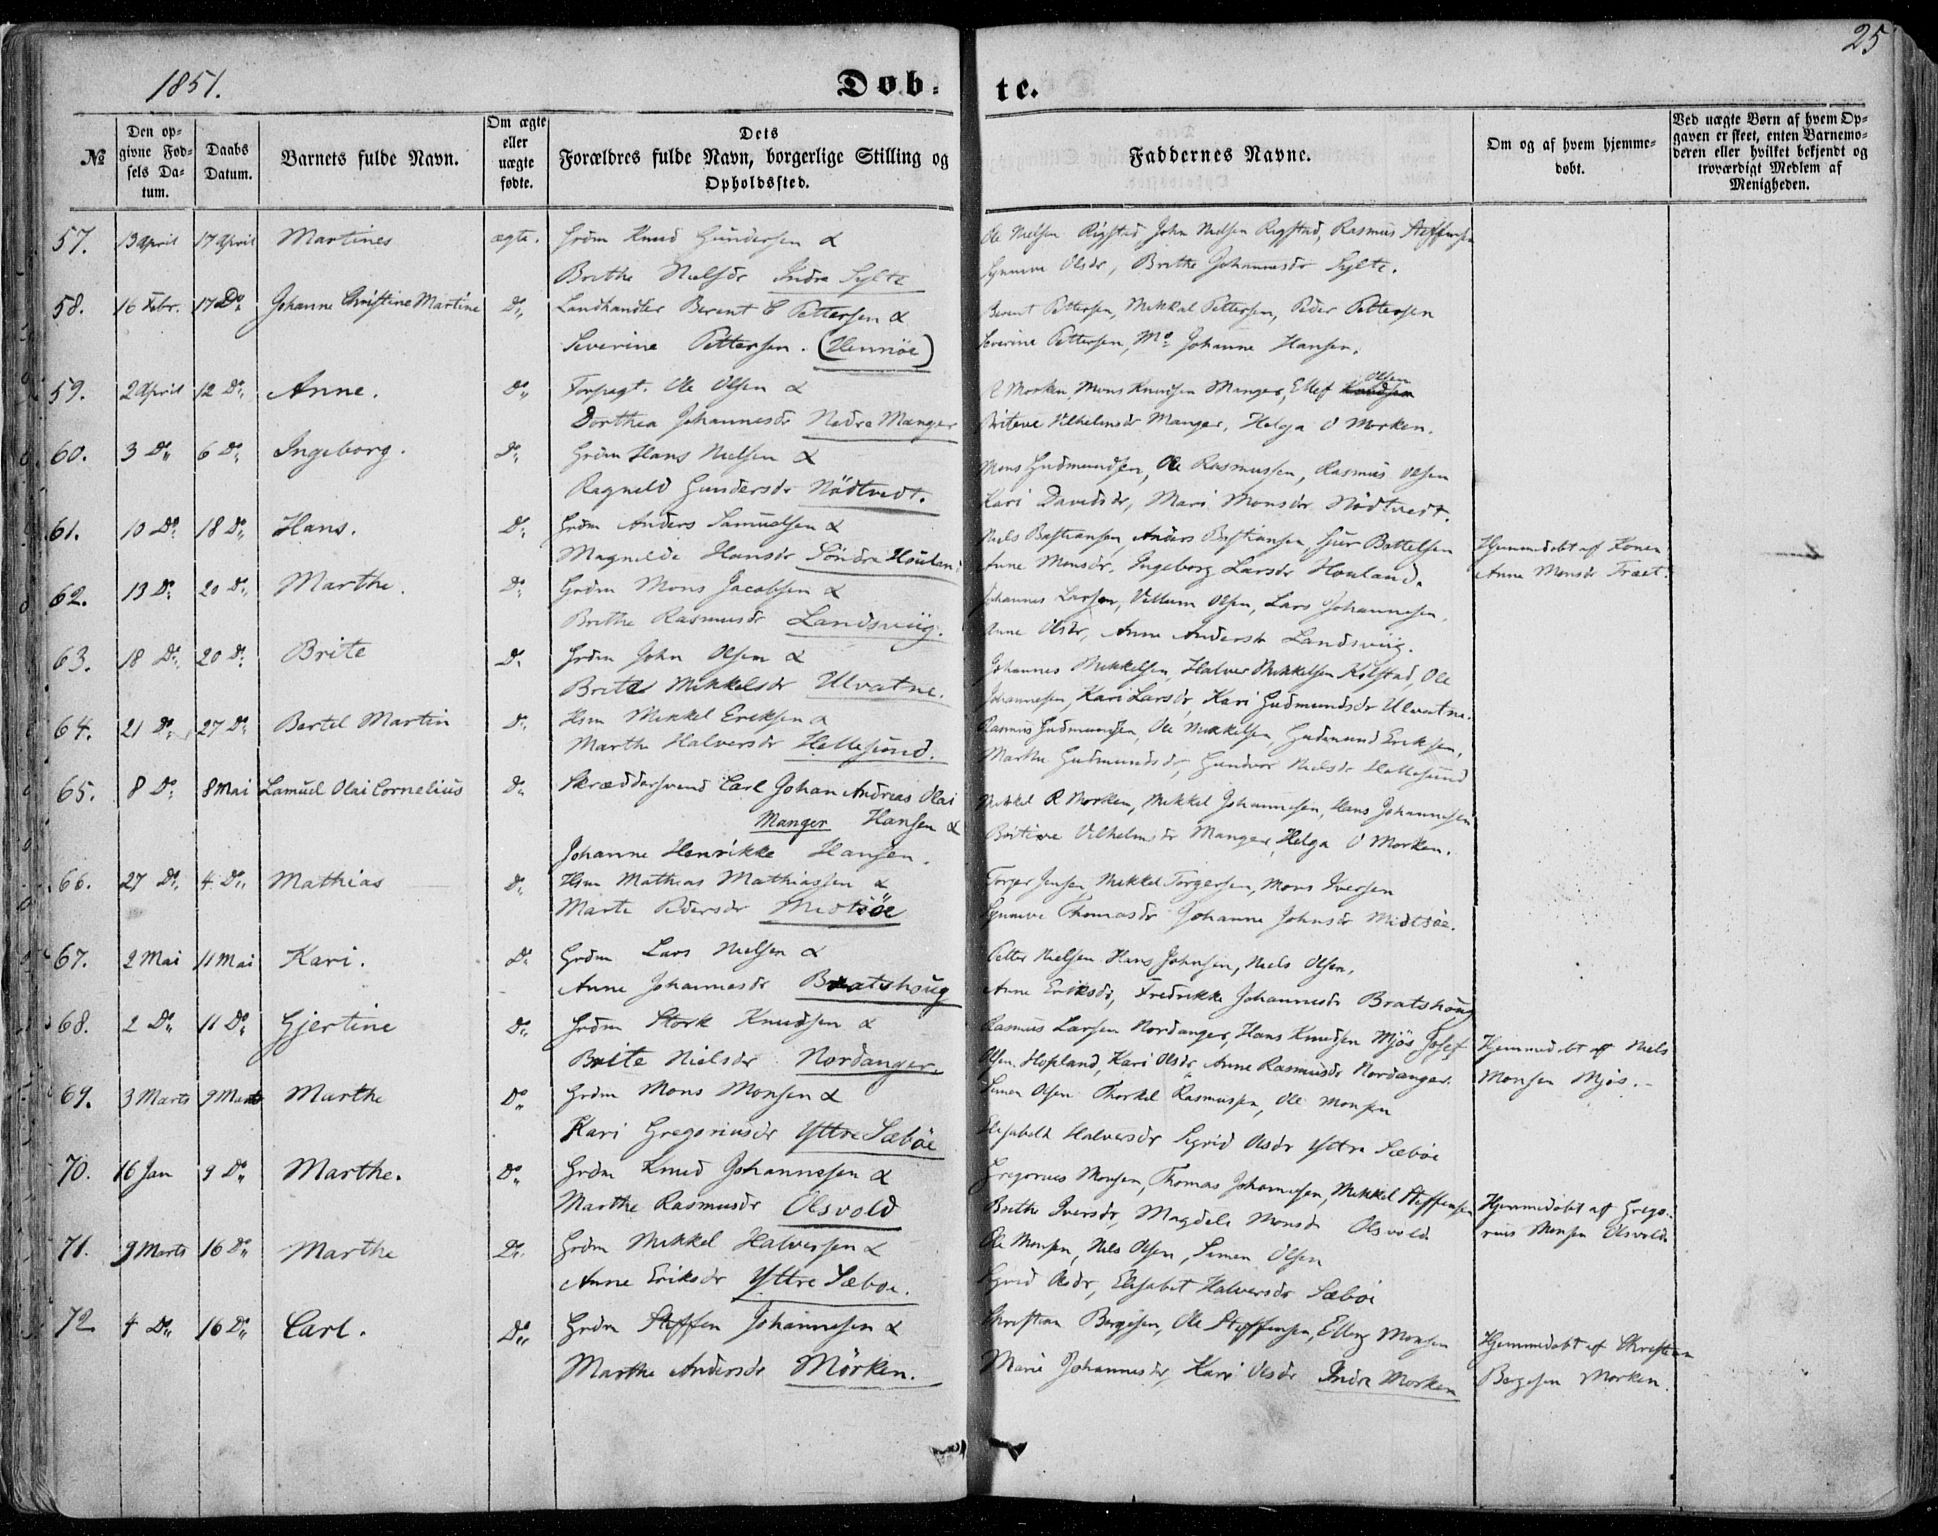 1851.
Døb-
te.
25
No
Den op-
givne Fød-
sels Da-
tum.
Daabs
Datum.
Barnets fulde Navn.
Om ægte
eller
uægte
fødte.
Dets
Forældres fulde Navn, borgerlige Stilling og
Opholdssted.
Faddernes Navne.
Om og af hvem hjemme-
døbt.
Ved uægte Børn af hvem Op-
gaven er skeet, enten Barnemo-
deren eller hvilket bekjendt og
troværdigt Medlem af
Menigheden.
57. 13 April 17 April Martines ægte. Grdm Knud Gundersen &
Brithe Nielsdr Indre Sylte
Ole Nielsen Rigstad John Nielsen Rigstad, Rasmus Steffensen
Synneve Olsdr, Brithe Johannesdr Sylte.
58. 16 Febr. 17 Do Johanne Christine Martine Do Landhandler Berent C Pettersen &
Severine Pettersen. (Hennøe)
Berent Pettersen, Mikkal Pettersen, Peder Pettersen
Severine Pettersen, Johanne Hansen.
59. 2 April 12 Do Anne. Do Forpagt. Ole Olsen &
Dorthea Johannesdr Nedre Manger
R Morken, Mons Knudsen Manger, Ellef Olsen
Briteve Vilhelmsdr Manger, Helga O Morken.
60. 3 Do 6 Do Ingeborg. Do Grdm Hans Nielsen &
Ragneld Gundersdr Nödtvedt.
Mons Gudmundsen, Ole Rasmussen, Rasmus Olsen
Kari Davidsdr, Mari Monsdr Nödtvedt.
61. 10 Do 18 Do Hans. Do Grdm Anders Samuelsen &
Magnelde Hansdr Söndre Houlan
Niels Bastiansen, Anders Bastiansen, Gjur Bottelsen
Anne Monsdr. Ingeborg Larsdr Houland.
Hjemmedøbt af Konen
Anne Monsdr Træt.
62. 13 Do 20 Do Marthe. Do Grdm Mons Jacobsen &
Brithe Rasmusdr Landsviig.
Johannes Larsen, Villum Olsen, Lars Johannesen,
Anne Olsdr, Anne Andersdr Landsviig.
63. 18 Do 20 Do Brite Do Grdm John Olsen &
Brite Mikkelsdr Ulvatne.
Johannes Mikkelsen, Halver Mikkelsen Kolstad, Ole
Johannesen, Kari Larsdr, Kari Gudmundsdr Ulvatne.
64. 21 Do 27 Do Bertel Martin Do Hsm Mikkel Eriksen &
Marthe Halversdr Hellesund.
Rasmus Gudmundsen, Ole Mikkelsen, Gudmund Eriksen,
Marthe Gudmundsdr, Gundvor Nielsdr Hellesund
65. 8 Do 8 Mai Samuel Olai Cornelius Do Skræddersvend Carl Johan Andreas Olai
Manger Hansen &
Johanne Henrikke Hansen.
Mikkel R Morken, Mikkel Johannesen, Hans Johannesen
Britive Vilhelmsdr Manger, Helga O Morken.
66. 27 Do 4 Do Mathias Do Hsm Mathias Mathiassen &
Marte Pedersdr Midtöe
Torger Jensen, Mikkel Torgersen, Mons Iversen
Synneve Thomasdr Johanne Johnsdr Midtöe.
67. 2 Mai 11 Mai Kari. Do Grdm Lars Nielsen &
Anne Johannesdr Bratshoug
Petter Nielsen Hans Johnsen, Niels Olsen,
Anne Eriksdr, Fredrikke Johannesdr Bratshoug
68. 2 Do 11 Do Gjertine Do Grdm Stork Knudsen &
Brite Nielsdr Nordanger
Rasmus Larsen Nordanger, Hans Knudsen Mjös Josef
Olsen Hopland, Kari Olsdr, Anne Rasmusdr Nordanger.
Hjemmedøbt af Niels
Monsen Mjøs.
69. 3 Marts 9 Marts Marthe Do Grdm Mons Monsen &
Kari Gregoriusdr Yttre Sæböe
Simen Olsen Thorkel Rasmussen, Ole Monsen
Elisabeth Halversdr Sigrid Olsdr Yttre Sæböe
70. 16 Jan 9 Do Marthe. Do Grdm Knud Johannesen &
Marthe Rasmusdr Olsvold
Gregorius Monsen, Thomas Johannesen, Mikkel Steffensen
Brithe Iversdr, Magdele Monsdr Olsvold
Hjemmedøbt af Grego-
rius Monsen Olsvold
71. 9 Marts 16 Do Marthe Do Grdm Mikkel Halversen &
Anne Eriksdr Yttre Sæboe.
Ole Monsen, Niels Olsen, Simen Olsen
Sigrid Olsdr, Elisabet Halversdr Sæböe
72 4 Do 16 Do Carl. Do Grdm Steffen Johannesen &
Marthe Andersdr Mörken.
Christian Børgesen, Ole Steffensen, Elling Monsen
Marie Johannesdr, Kari Olsdr Indre Morken
Hjemmedøbt af Christian
Børgesen Morken.